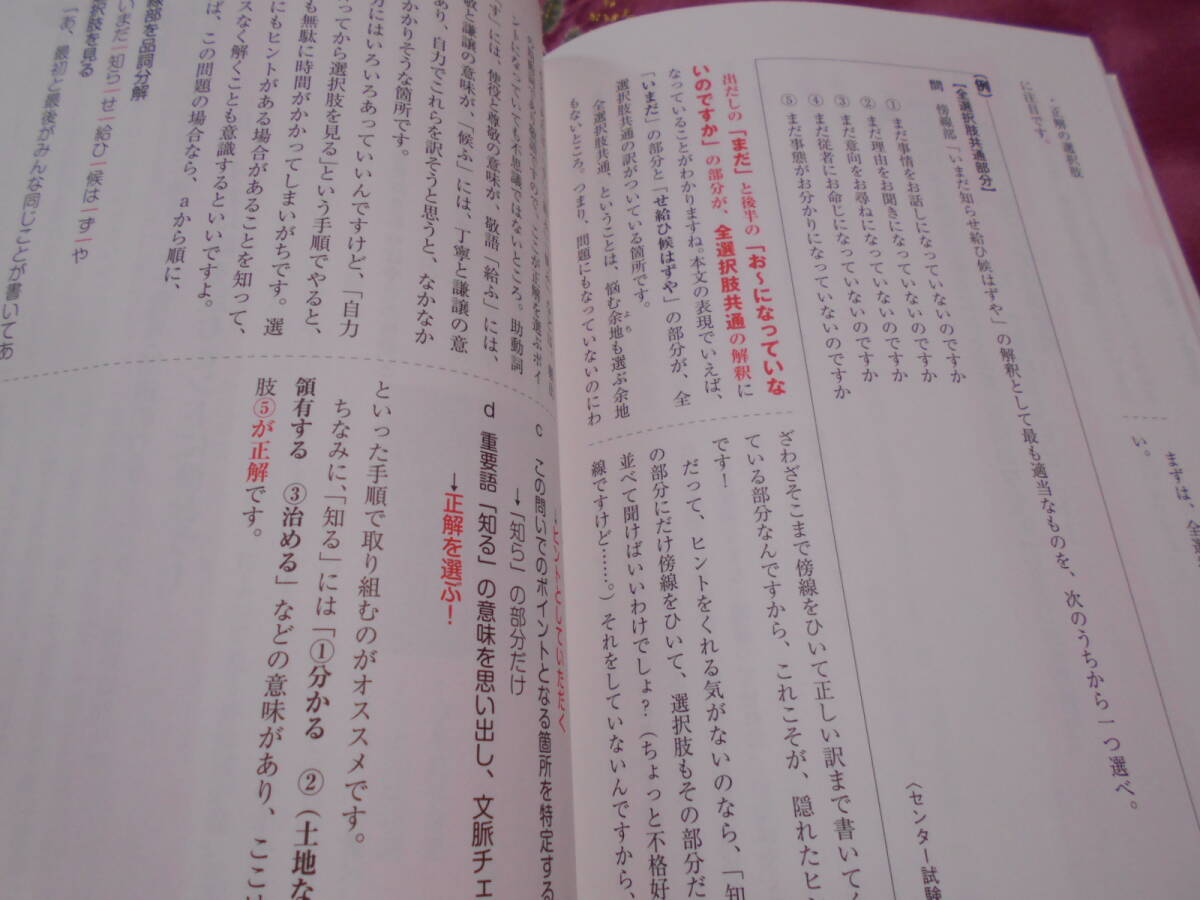 ・正解の選択肢
に注目です。
まずは、全選
い。
(例)
【全選択肢共通部分】
問 傍線部「いまだ知らせ給ひ候はずや」の解釈として最も適当なものを、次のうちから一つ選べ。
① まだ事情をお話しになっていないのですか
② まだ理由をお聞きになっていないのですか
③ まだ意向をお尋ねになっていないのですか
④ まだ従者にお命じになっていないのですか
⑤ まだ事態がお分かりになっていないのですか
〈センター試験
出だしの「まだ」と後半の「お〜になっていな
いのですか」の部分が、全選択肢共通の解釈に
なっていることがわかりますね。本文の表現でいえば、
「いまだ」の部分と「せ給ひ候はずや」の部分が、全
選択肢共通の訳がついている箇所です。
全選択肢共通、ということは、悩む余地も選ぶ余地
よち
もないところ。つまり、問題にもなっていないのにわ
ざわざそこまで傍線をひいて正しい訳まで書いてく
ている部分なんですから、これこそが、隠れたヒン
です!
だって、ヒントをくれる気がないのなら、「知
の部分にだけ傍線をひいて、選択肢もその部分だ
並べて聞けばいいわけでしょ?(ちょっと不格好
線ですけど……。)それをしていないんですから、
ントになっていても不思議ではないところ。助動詞
す」には、使役と尊敬の意味が、敬語「給ふ」には、
敬と謙譲の意味が、「候ふ」には、丁寧と謙譲の意
あり、自力でこれらを訳そうと思うと、なかなか
かかりそうな箇所です。
方にはいろいろあっていいんですけど、「自力
ってから選択肢を見る」という手順でやると、
も無駄に時間がかかってしまいがちです。選
にもヒントがある場合があることを知って、
スなく解くことも意識するといいですよ。
ば、この問題の場合なら、aから順に、
線部を品詞分解
いまだ|知ら|せ|給ひ|候は|ず|や
択肢を見る
「あ、最初と最後がみんな同じことが書いてあ
→ヒントとしていただく
c この問いでのポイントとなる箇所を特定する
→「知ら」の部分だけ
d 重要語「知る」の意味を思い出し、文脈チェ
→正解を選ぶ!
といった手順で取り組むのがオススメです。
ちなみに、「知る」には「①分かる ②(土地な
領有する ③治める」などの意味があり、ここは
肢⑤が正解です。